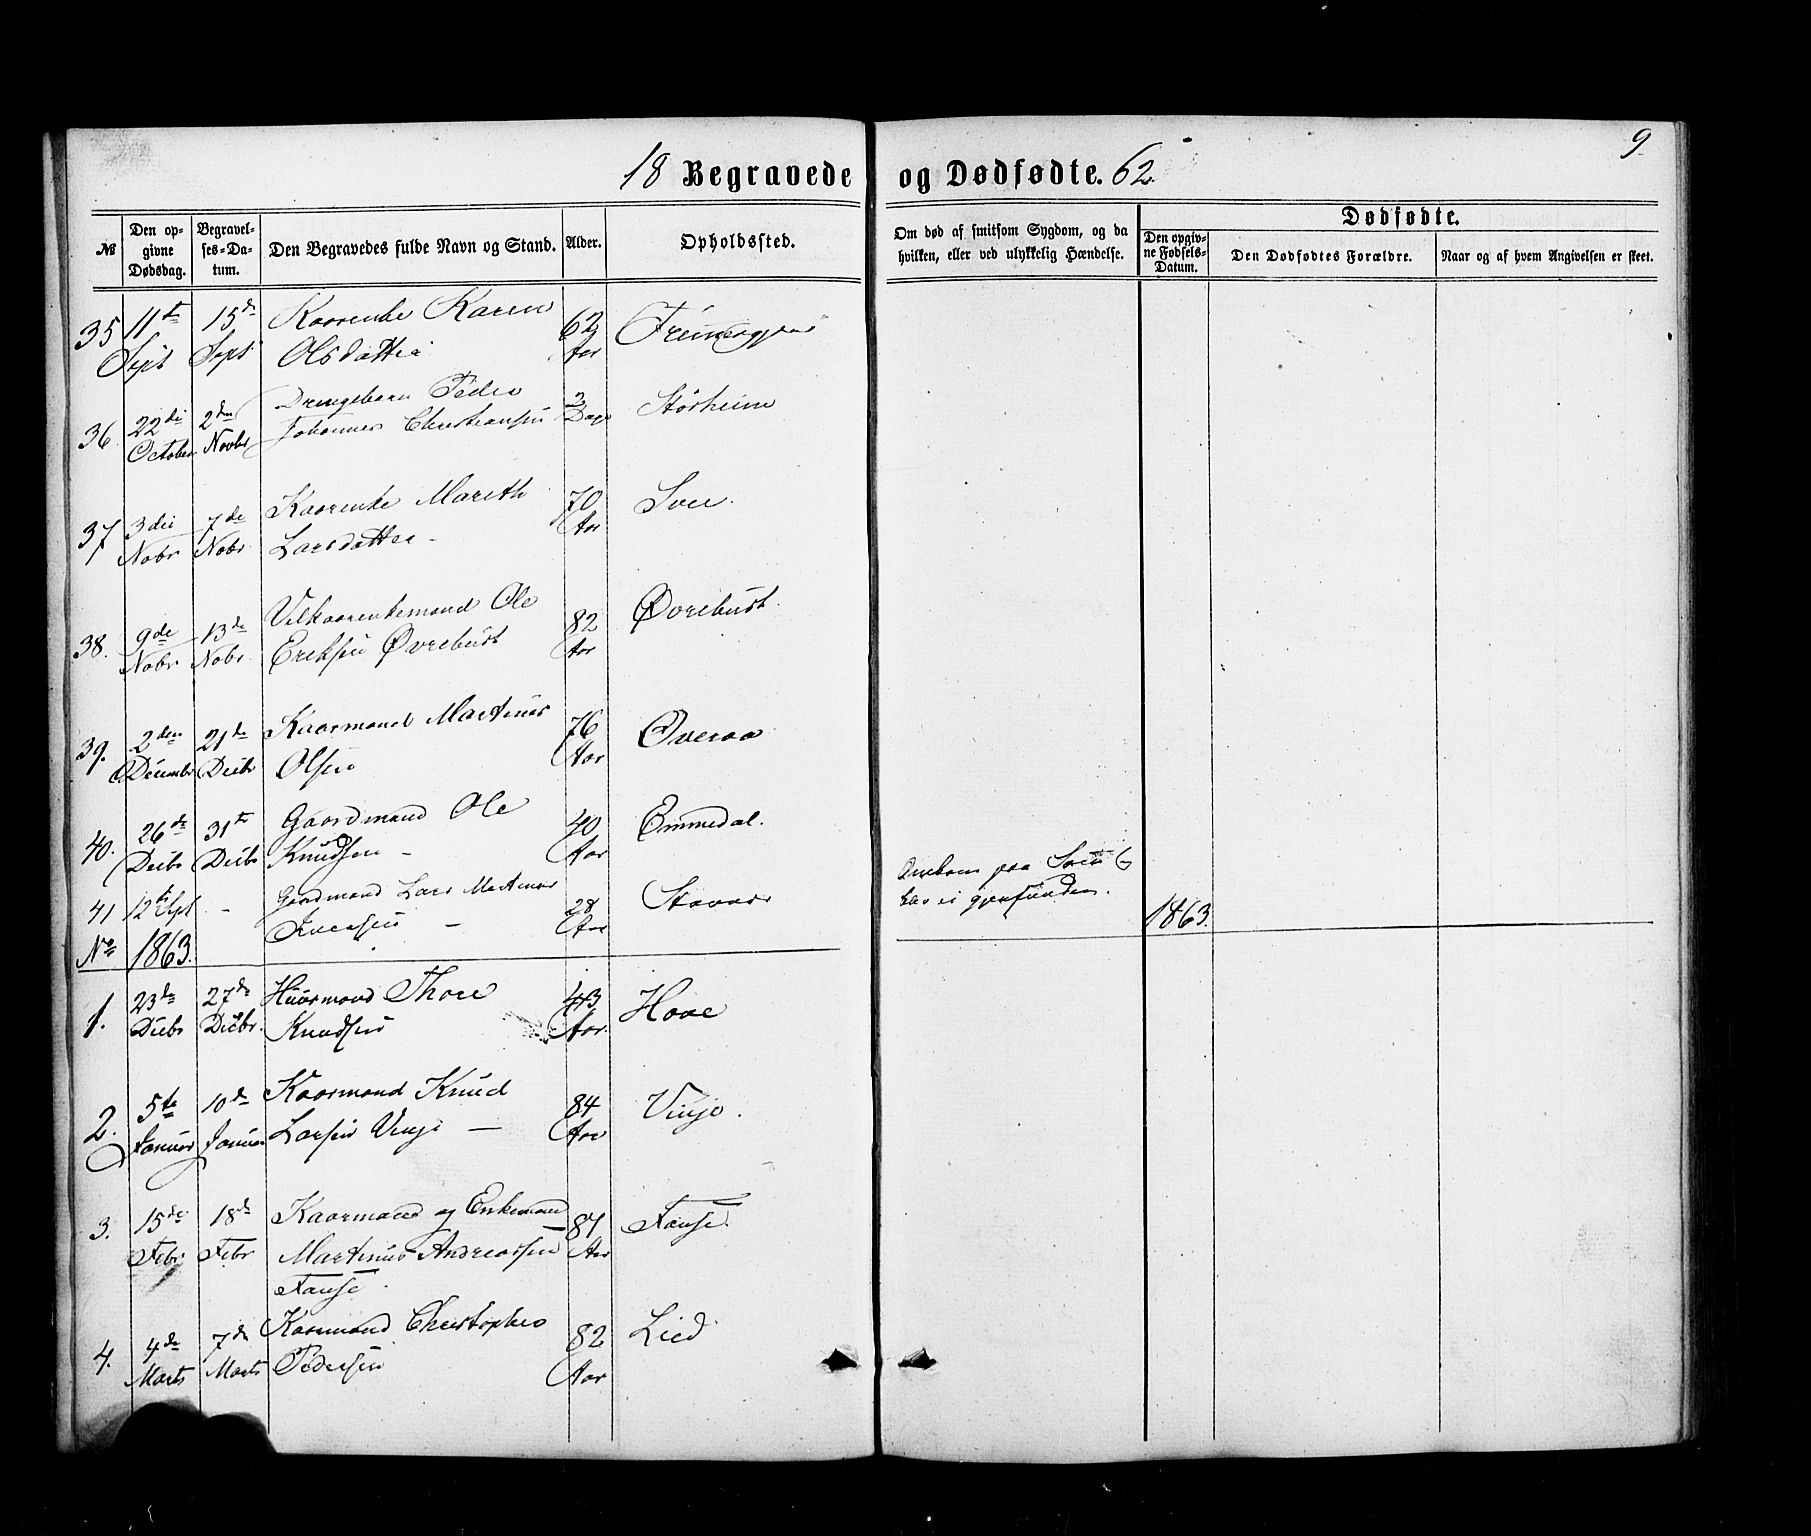 9
18 Begravede og Dødfødte. 62.
№
Den opgivne Dødsdag.
Begravelses-Datum.
Den Begravedes fulde Navn og Stand.
Alder.
Opholdssted.
Om død af smitsom Sygdom, og da hvilken, eller ved ulykkelig Hændelse.
Dødfødte.
Den opgivne Fødsels-Datum.
Den Dødfødtes Forældre.
Naar og af hvem Angivelsen er skeet.
35 11te 15de Kaarenke Karen 62
Sept Sept Olsdatter Aar
36. 22de 2den Drengebarn Peder 2 Störheim
October Novbr Johannes Christiansen Dage
37 3die 7de Kaarenke Mareth 70 Svee.
Nobr Nobr Larsdatter - Aar
38. 9de 13de Vilkaarenkemand Ole 82 Øvrebust.
Nobr Nobr Eriksen Øvrebust Aar
39. 2den 21de Kaarmand Martinus 76 Øveraa
Decembr Decbr Olsen Aar
40. 26de 31te Gaardmand Ole 40 Emmedal.
Decbr Decbr Knudsen - Aar
41 12te Sept - Gaardmand Lars Martinus 28
Iversen - Aar
Omkom paa
ei gjenfunden.
No 1863.
1863.
1. 23de 27de Huusmand Thore 43 Hove
Decbr Decbr. Knudsen Aar
2. 5te 10de Kaarmand Knud 84 Vinje.
Januar Januar Larsen Vinje - Aar
3. 15de 18de Kaarmand og Enkemand 87 Tause.
Febr Febr Martinus Andreassen Aar
Tause
4. 4de 7de Kaarmand Christopher 82 Lied
Marts Marts Pedersen Aar